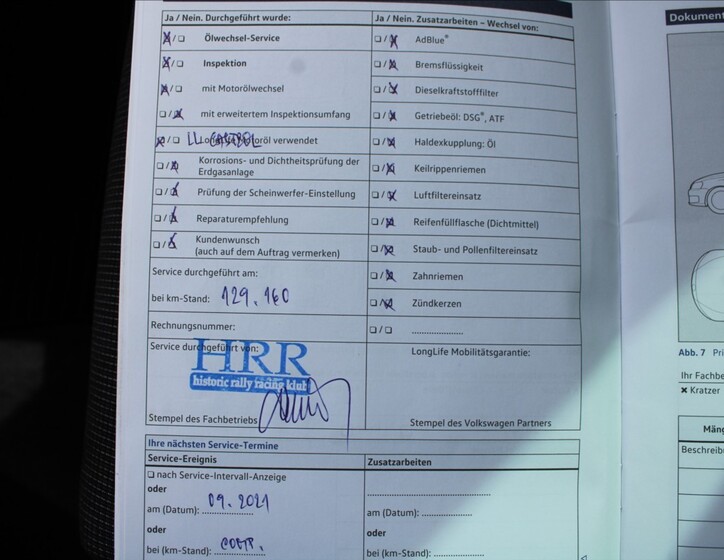 Ja / Nein. Durchgeführt wurde:
Ja / Nein. Zusatzarbeiten – Wechsel von:
Ölwechsel-Service
AdBlue®
Inspektion
Bremsflüssigkeit
mit Motorölwechsel
Dieselkraftstofffilter
mit erweitertem Inspektionsumfang
Getriebeöl: DSG®, ATF
verwendet
Haldexkupplung: Öl
Korrosions- und Dichtheitsprüfung der
Erdgasanlage
Keilrippenriemen
Prüfung der Scheinwerfer-Einstellung
Luftfiltereinsatz
Reparaturempfehlung
Reifenfüllflasche (Dichtmittel)
Kundenwunsch
(auch auf dem Auftrag vermerken)
Staub- und Pollenfiltereinsatz
Service durchgeführt am:
Zahnriemen
bei km-Stand: 129.160
Zündkerzen
Rechnungsnummer:
Service durchgeführt von:
HRR
historic rally racing klub
LongLife Mobilitätsgarantie:
Stempel des Fachbetriebs
Stempel des Volkswagen Partners
Ihre nächsten Service-Termine
Service-Ereignis
Zusatzarbeiten
nach Service-Intervall-Anzeige
oder
am (Datum): 09.2021
am (Datum):
oder
oder
bei (km-Stand):
bei (km-Stand):
Dokument
Abb. 7 Pri
Ihr Fachbe
Kratzer
Mäng
Beschreib